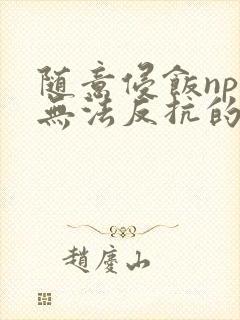 随意侵飯np
無法反抗的
趙慶山